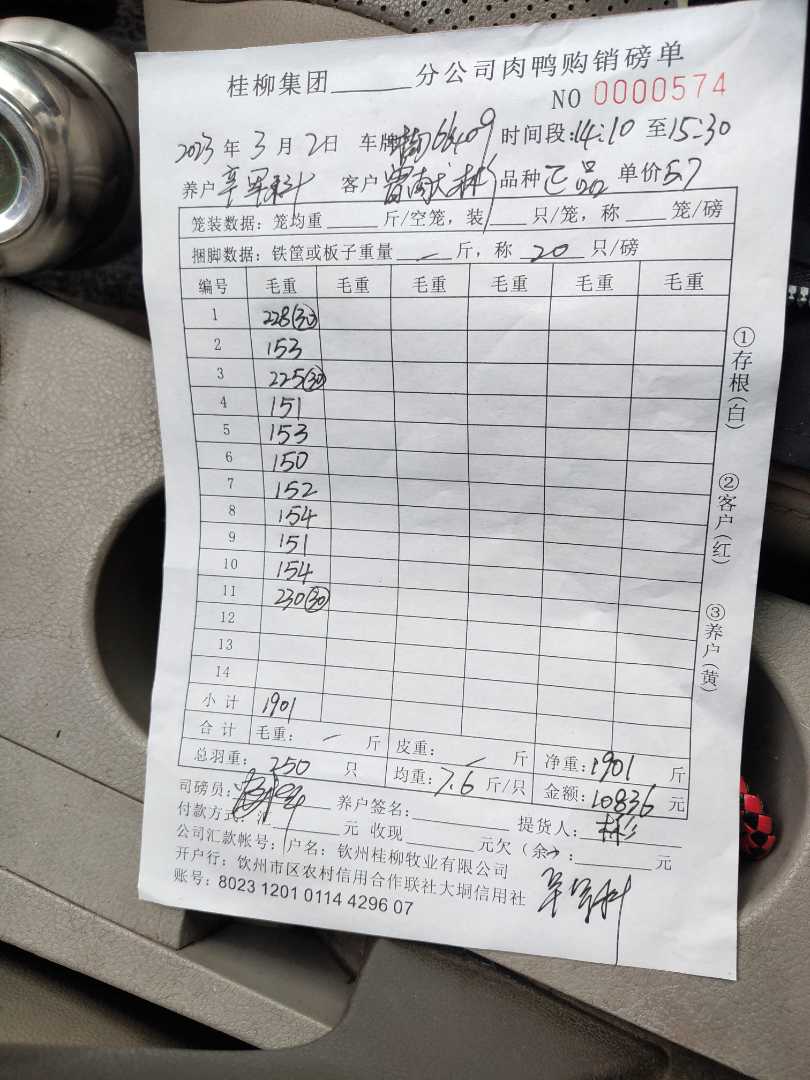 桂柳集团______分公司肉鸭购销磅单
NO 0000574
2023年3月2日 车牌 66409 时间段:14:10至15:30
养户 客户 品种正品 单价5.7
笼装数据：笼均重_____斤/空笼，装____只/笼，称____笼/磅
捆脚数据：铁筐或板子重量__-__斤，称__20__只/磅
编号 毛重 毛重 毛重 毛重 毛重 毛重
1 228(30)
2 153
3 225(30)
4 151
5 153
6 150
7 152
8 154
9 151
10 154
11 230(30)
12
13
14
小计 1901
合计 毛重： - 斤 皮重： - 斤 净重：1901 斤
总羽重： 250 只 均重：7.6 斤/只 金额：10836 元
司磅员： 养户签名：________ 提货人：彬
付款方式：汇____元 收现________元欠（余）：______元
公司汇款帐号：户名：钦州桂柳牧业有限公司
开户行：钦州市区农村信用合作联社大垌信用社
账号：8023 1201 0114 4296 07
①存根(白)
②客户(红)
③养户(黄)